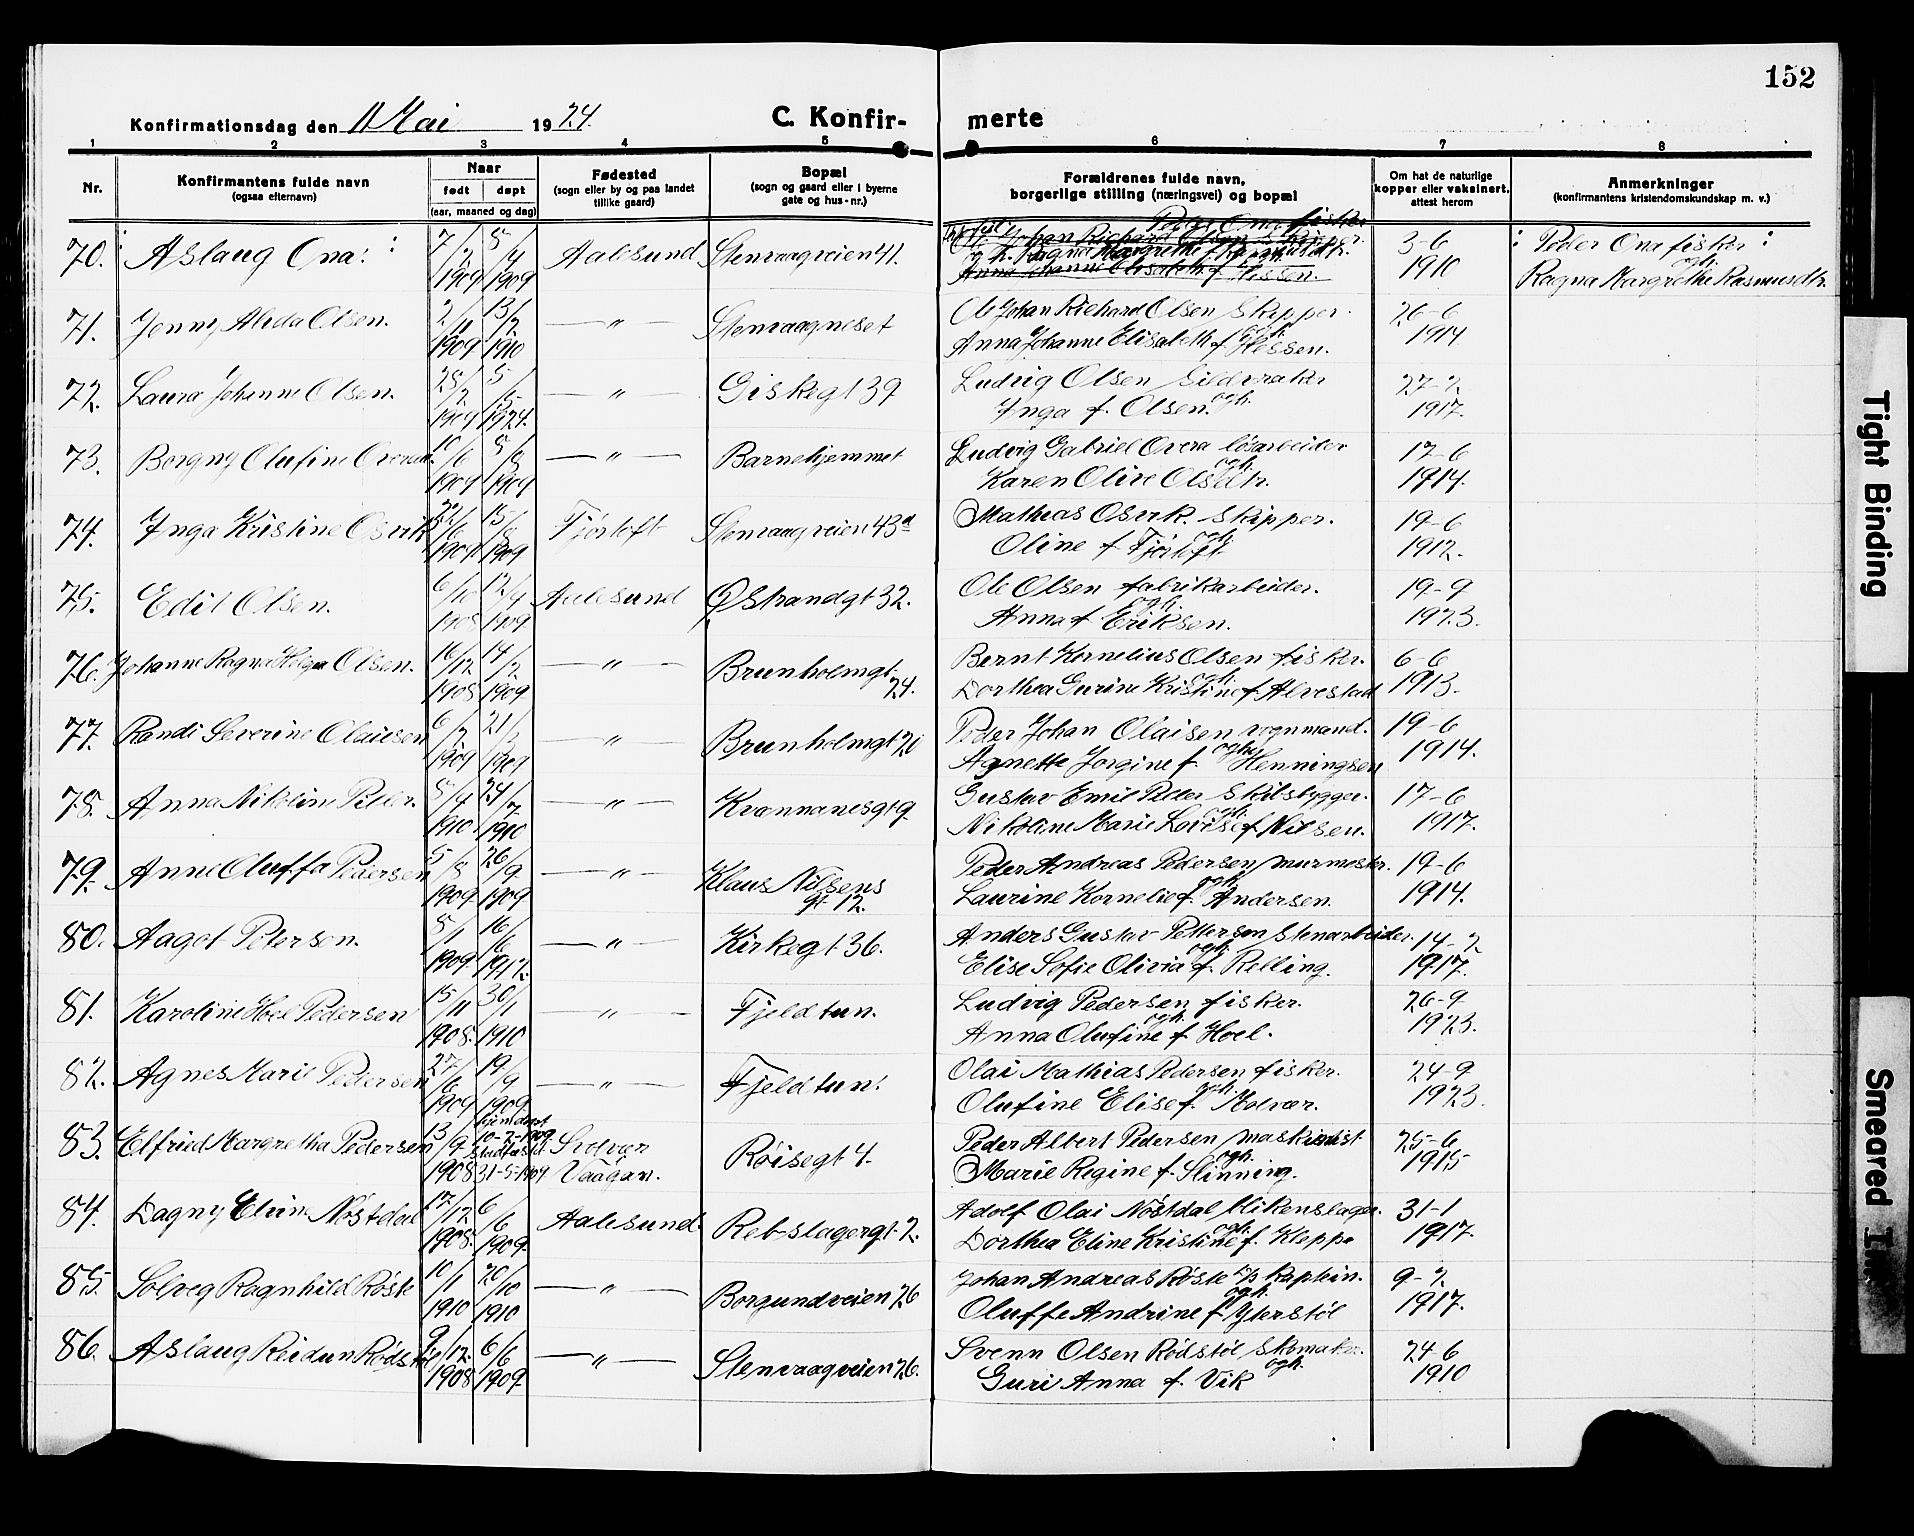 152
Konfirmationsdag den 11 Mai 1924.
C. Konfirmerte
1 2 3 4 5 6 7 8
Nr.
Konfirmantens fulde navn
(ogsaa efternavn)
Naar
født døpt
(aar, maaned og dag)
Fødested
(sogn eller by og paa landet
tillike gaard)
Bopæl
(sogn og gaard eller i byerne
gate og hus-nr.)
Forældrenes fulde navn,
borgerlige stilling (næringsvei) og bopæl
Om hat de naturlige
kopper eller vaksinert,
attest herom
Anmerkninger
(konfirmantens kristendomskundskap m. v.)
70. Aslaug Ona. 7/2 1909 5/4 1909 Aalesund Stenvaagveien 41. 3-6 1910 Peder Ona fisker
ogh. Ragna Margrethe Rasmusdtr.
71. Jenny Alida Olsen. 1909 13/2 1910 — " — Stenvaagneset Ole Johan Richard Olsen Skipper. 26-6
ogh. Anna Johanne Elisabeth f. Hessen. 1914
72. Laura Johanne Olsen. 28/2 1909 1924. — " — Giskegt 39 Ludvig Olsen Sildvraker 27-2
ogh. Inga f. Olsen. 1917.
73. Borgny Olufine Overaa. 10/6 1909 5/8 1909 — " — Barnehjemmet Ludvig Gabriel Overa løsarbeider 17-6
ogh. Karen Olive Olsdtr. 1914.
74. Inga Kristine Osvik 1909 15/8 1909 Fjørtoft Stenvaagveien 43a Mathias Osvik. Skipper. 19-6
ogh. Oline f. Fjørtoft. 1912.
75. Edit Olsen. 6/10 1908 12/4 1909 Aalesund Ø Strandgt 32. Ole Olsen fabrikarbeider. 19-9
ogh. Anna f. Eriksen. 1923.
76. Johanne Ragna Helga Olsen. 16/12 1908 14/2 1909 — " — Brunholmgt 24. Bernt Kornelius Olsen fisker. 6-6
ogh. Dorthea Gurine Kristine f. Alvestad 1913.
77. Randi Severine Olaisen 6/2 1909 21/ 1909 — " — Brunholmgt 20 Peder Johan Olaisen vognmand. 19-6
ogh. Agnette Jorgine f. Henningsen 1914.
78. Anna Nikoline Peder. 5/4 1910 24/7 1910 — " — Kvannanesgt 9 Gustav Emil Peder Skibsbygger. 17-6
ogh. Nikoline Marie Lovise f. Nilsen. 1917.
79. Anne Oluffa Pedersen 5/8 1909 26/9 1909 — " — Klaus Nilsens gt. 12. Peder Andreas Pedersen murmester. 19-6
ogh. Laurine Kornelie f. Andersen. 1914.
80. Aagot Petersen. 5/1 1909 16/6 1912. — " — Kirkegt 36. Anders Gustav Pettersen Stenarbeider. 14-2
ogh. Elise Sofie Olivia f. Relling. 1917.
81. Karoline Hoel Pedersen 15/11 1908. 30/1 1910 — " — Fjeldtun. Ludvig Pedersen fisker. 26-9
ogh. Anna Olufine f. Hoel. 1923.
82. Agnes Marie Pedersen 27/6 1909 19/9 1909. — " — Fjeldtun. Olai Mathias Pedersen fisker. 24-9
ogh. Olufine Elise f. Molvær. 1923.
83. Elfried Margretha Pedersen 13/9 1908 hjemdøpt 10-2-1909 stadfæstet 31-5-1909 Svolvær Vaagan. Røisegt 4. Peder Albert Pedersen maskinist 25-6
ogh. Marie Regine f. Slinning. 1915
84. Dagny Eline Nøstdal 12/12 1908. 6/6 1909. Aalesund. Rebslagergt. 2. Adolf Olai Nøstdal blikenslager. 31-1
ogh. Dorthea Eline Kristine f. Kleppe 1917.
85. Solveg Ragnhild Røste 10/1 1910 20/10 1910 — " — Borgundveien 26 Johan Andreas Røste Kaptein. 9-2
ogh. Oluffe Andrine f. Yterstøl 1917.
86. Aslaug Reidun Rødstøl 9/12. 1908 6/6 1909. — " — Stenvaagveien 26. Svenn Olsen Rødstøl Skomaker. 24-6
ogh. Guri Anna f. Vik 1910
Tight Binding
Smeared Ink